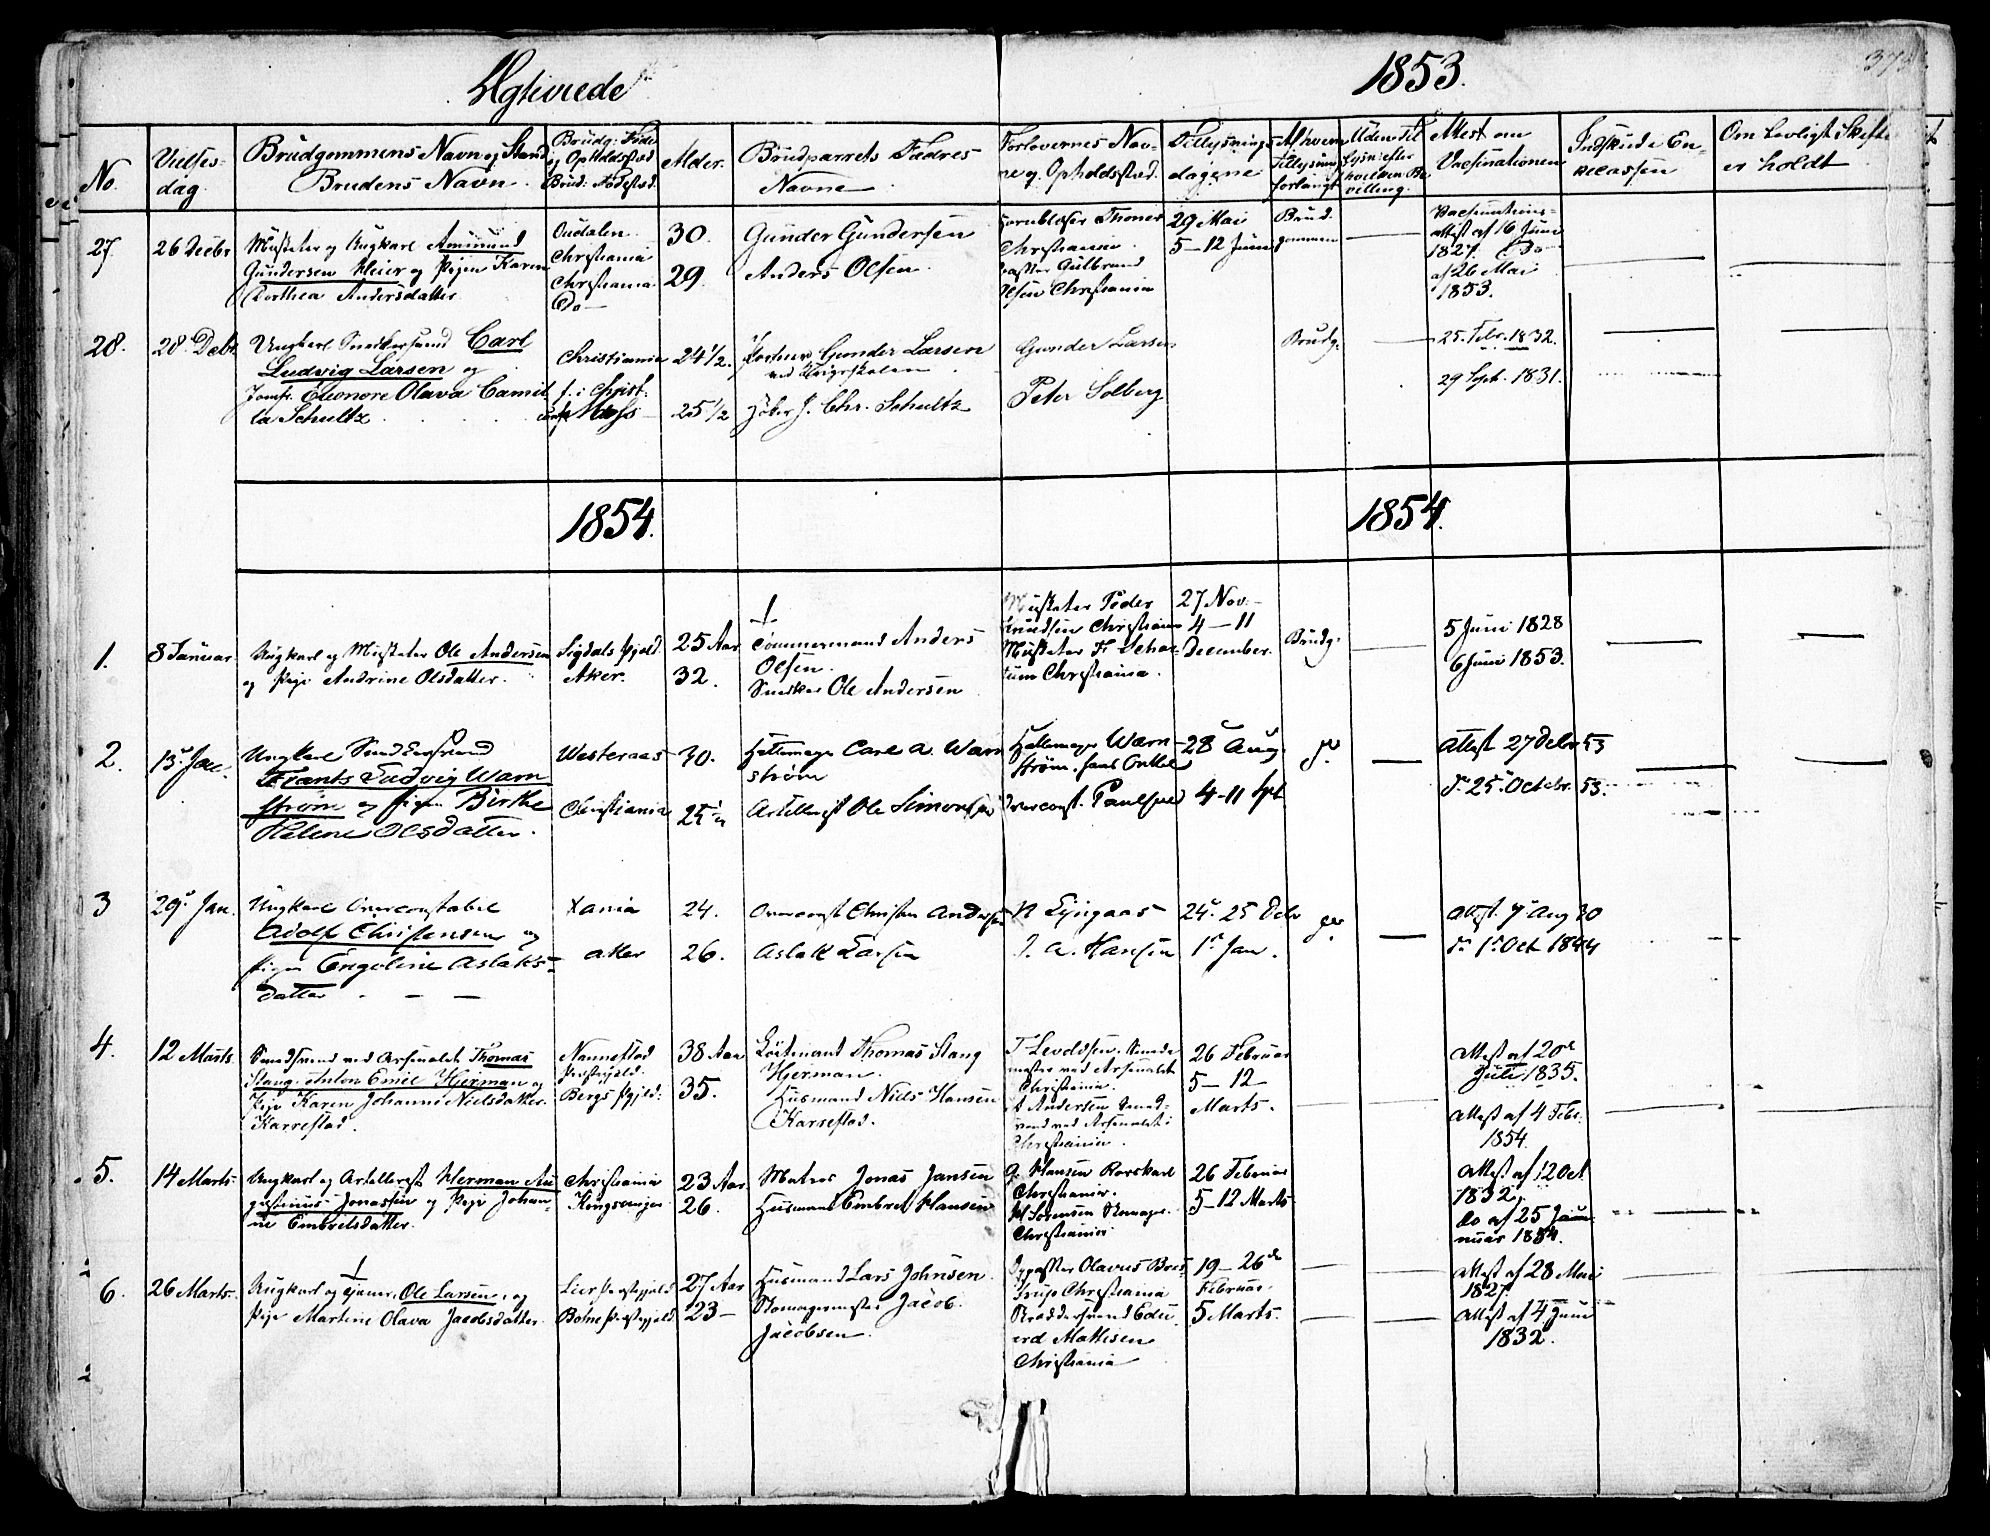 Ægteviede
1853.
No.
Vielses-
dag.
Brudgommens Navn og Stand
Brudens Navn.
Brudg: Føde
og Opholdssted
Brud: Fødested.
Alder.
Brudparrets Fædres
Navne
Forlovernes Nav-
ne og Opholdssted.
Tillysnings-
dagene
Af hvem
Tillysning
forlangt
Uden Til
lysn: efter
hvilken Be
villing.
Attest om
Vaccinationen
Indskud i En-
kecassen
Om Lovligt Skifte
er holdt
27.
26 Decbr
Musketer og Ungkarl Ammund
Gundersen Meier og Pigen Karen
Dorthea Andersdatter
Oudalen.
Christiania
Christiania.
Do
30.
29.
Gunder Gundersen
Anders Olsen.
Hornblæser Thoner
Christiania.
Gulbrand
Olsen Christiania
29 Mai
5-12 Juni
Brud-
gommen
Vaccinations-
attest af 16 Juni
1827. Do
af 26 Mai
1853.
28.
28 Decbr
Ungkarl Snedkersvend Carl
Ludvig Larsen og
Jomfr. Eleonore Olava Camil
la Schultz
Christiania
f. i Christ:
conf. Moss
24 1/2.
25 1/2
Gunder Larsen
ved Krigsskolen
J. Chr. Schultz
Gunder Larsen
Peter Solberg
Brudg.
25. Febr. 1832.
29 Sept. 1831.
1854.
1854.
1.
8 Januar
Ungkarl og Musketer Ole Andersen
og Pige Andrine Olsdatter.
Sigdals Pgjeld.
Aker.
25 Aar
32.
†
Tømmermand Anders
Olsen.
Snedker Ole Andersen
Musketer Peder
Knudsen Christiania
Musketer
Christiania.
27 Nov.
4-11
December.
Brudg.
5 Juni 1828
6 Juni 1853.
2.
13 Jan.
Ungkarl Snedkersvend
Frants Ludvig Warn
strøm og pigen Birthe
Helene Olsdatter.
Westeraas
Christiania
30.
25 1/2
Hattemager Carl A. Warn
strøm
Artillerist Ole Simonsen
Hattemager Warn-
strøm, samt Onkel
Overconst. Paulsen
28 Aug
4-11 Spt
Attest 27 Decbr 53
do 25 Octobr. 53.
3
29 Jan.
Ungkarl Overconstabel
Adolf Christensen og
pigen Engeline Aslaks-
datter
Xania
Aker
24.
26.
Overconst Christen Andersen
Aslak Larsen
N Lyngaas
J. A. Hansen
24. 25 Dcbr
1 Jan.
Attest. 7 Aug 30
do 1 Oct 1844
4.
12 Marts.
Smedsvend ved Arsenalet Thomas
Stang Anton Emil Hjerman og
Pige Karen Johanne Nielsdatter
Karrestad.
Nannestad
Præstegjeld.
Bergs Pgjeld.
38 Aar
35.
Løitnant Thomas Stang
Hjerman.
Husmand Niels Hansen
Karrestad.
T Levoldsen. Smede
mester ved Arsenalet
Christiania.
A Andersen Smed-
svend ved Arsenalet i
Christiania.
26 Februar
5-12
Marts.
Attest af 20de
Juli 1835.
Attest af 4 Febr.
1854.
5.
14 Marts.
Ungkarl og Artillerist Herman Au
gustinus Jonassen og Pige Johan-
ne Embretsdatter.
Christiania
Kongsvinger
23 Aar
26.
Matros Jonas Jansen
Husmand Embret Hansen
G. Hansen Rorskarl
Christiania.
M Sørensen Skomager.
Christiania
26 Februar
5-12 Marts
Attest af 12 Oct
1832.
Do af 25 Jan
nuar 1854.
6.
26 Marts.
†
Ungkarl og Tjener. Ole Larsen, og
Pige Martine Olava Jacobsdatter.
Lier Præstegjeld
Botne Præstegjeld.
27 Aar
23
Husmand Lars Johnsen
Skomagermester Jacob
Jacobsen.
Olavus Bres-
trup Christiania
Skræddersvend Edv
ard Mathisen
Christiania
19-26de
Februar.
5 Marts.
Attest af 28 Mai
1827
Attest af 4 Juni
1832.